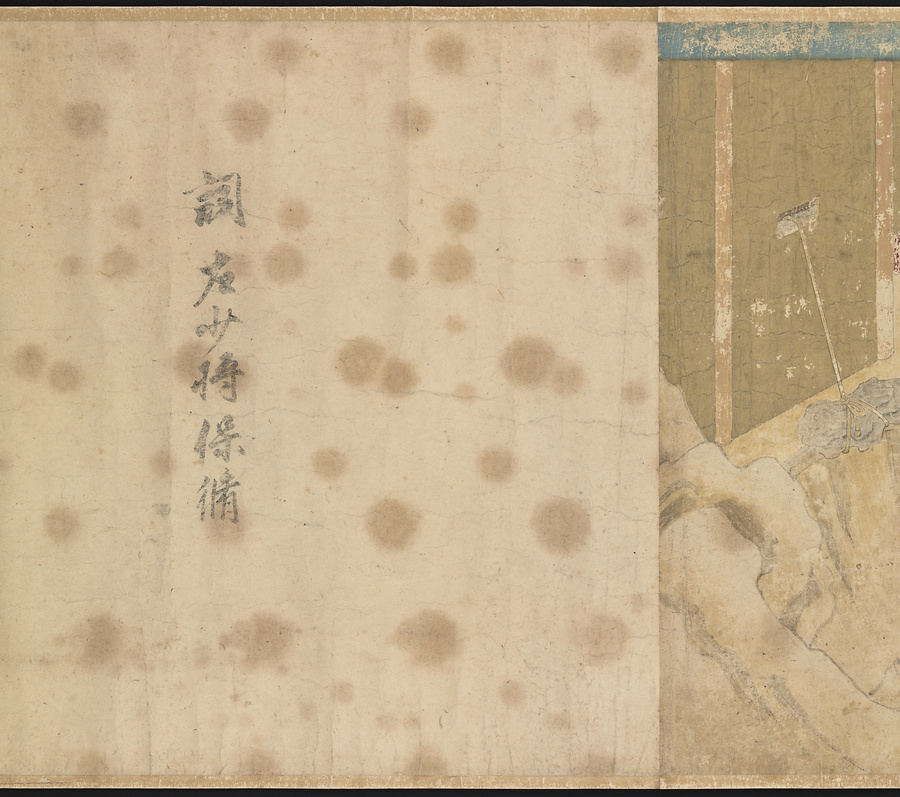 詞 左少将保脩